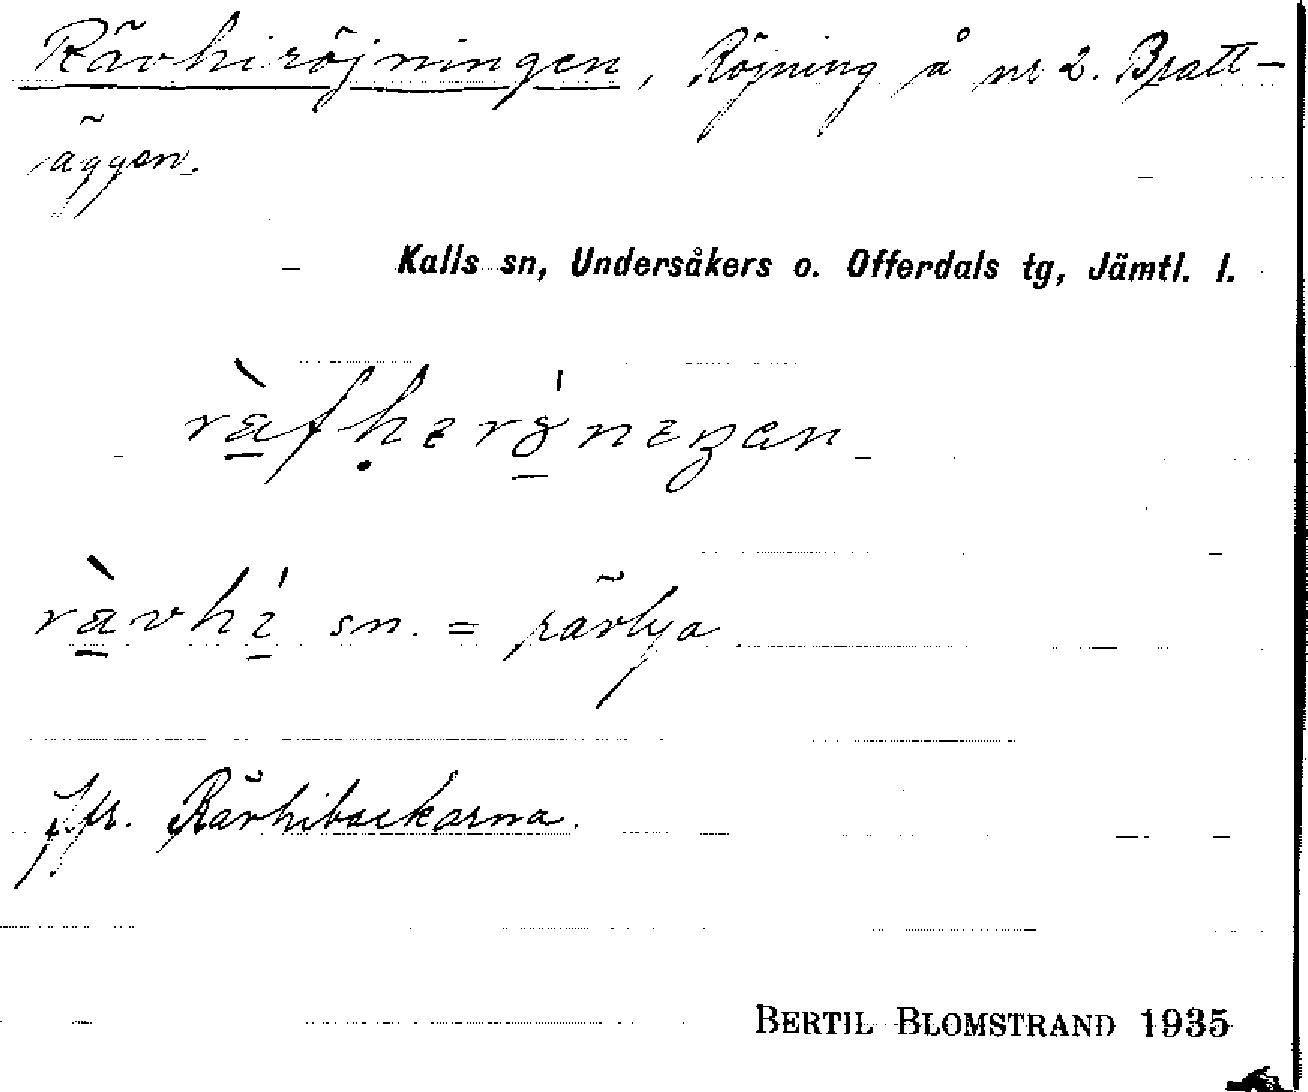 Rävhiröjningen, Röjning å nr 2. Bratt-
äggen.
Kalls sn, Undersåkers o. Offerdals tg, Jämtl. l.
rävhi sn. = rävlya
Jfr. Rävhibackarna.
BERTIL BLOMSTRAND 1935